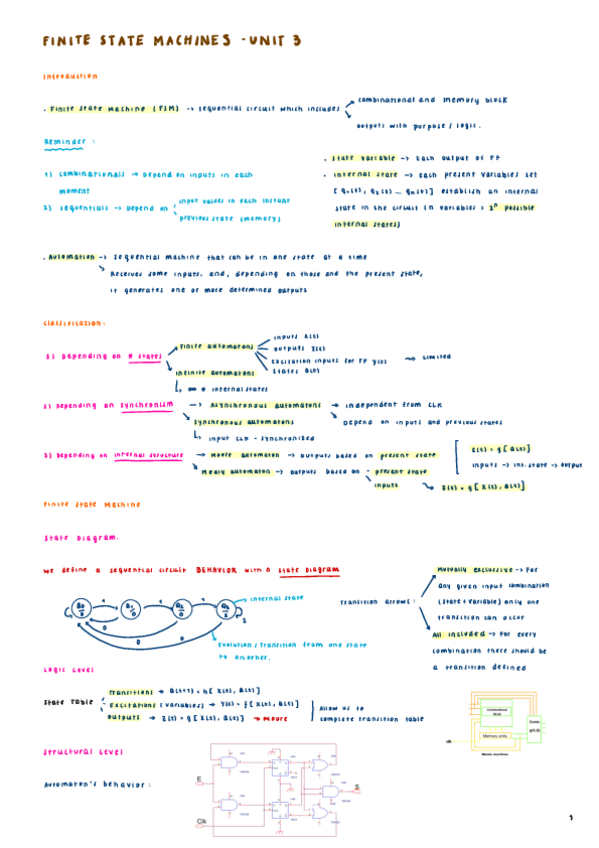 FINITE STATE MACHINES - UNIT 3
Introduction
. Finite State Machine (FSM) → sequential circuit which includes
combinational and memory block
outputs with purpose / logic.
Reminder :
1) Combinationals → Depend on inputs in each
moment
2) Sequentials → Depend on
input values in each instant
previous state (memory)
. State variable → Each output of FF
. Internal state → Each present variables set
establish an internal
state in the circuit (n variables = 2ⁿ possible
internal states)
. Automation → Sequential machine that can be in one state at a time
Receives some inputs. and, depending on those and the present state,
it generates one or more determined outputs
Classification:
1) Depending on # states
Finite automatons
inputs X(t)
outputs Z(t)
Excitation inputs for FF Y(t)
States Q(t)
→ limited
Infinite automatons
∞ # internal states
2) Depending on synchronism
→ Asynchronous automatons → independent from CLK
Depend on inputs and previous states
Synchronous automatons
input CLK - synchronized
3) Depending on internal structure
→ Moore automaton → outputs based on present state
Z(t) = g[Q(t)]
inputs → int. state → output
Mealy automaton → outputs based on
present state
inputs
Z(t) = g[X(t), Q(t)]
Finite State Machine
State Diagram.
We define a sequential circuit BEHAVIOR with a state diagram
internal state
Evolution / Transition from one state
to another.
Transition arrows :
Mutually exclussive → For
any given input combination
(state + variable) only one
transition can occur
All included → For every
combination there should be
a transition defined
Logic Level
State Table
Transitions → Q(t+1) = h[X(t), Q(t)]
Excitations (variables) → Y(t) = f[X(t), Q(t)]
Outputs → Z(t) = g[X(t), Q(t)] → Moore
Allow us to
complete transition table
Combinational
Memory units
clk
Structural Level
Automaton's behavior :
E
Clk
1